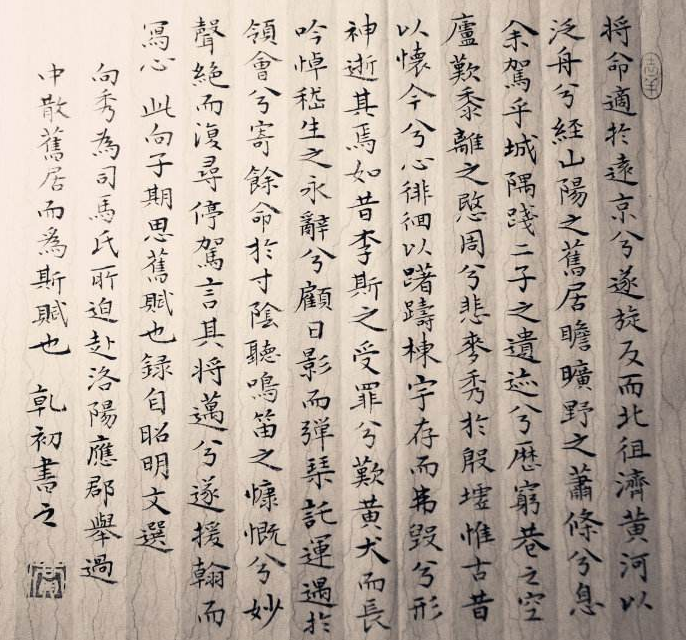 将命適於遠京兮遂旋反而北徂濟黄河以
泛舟兮經山陽之舊居瞻曠野之蕭條兮息
余駕乎城隅踐二子之遺迹兮歷窮巷之空
廬歎黍離之愍周兮悲麥秀於殷墟惟古昔
以懷今兮心徘徊以躊躇棟宇存而弗毀兮形
神逝其焉如昔李斯之受罪兮歎黄犬而長
吟悼嵇生之永辭兮顧日影而彈琴託運遇於
領會兮寄餘命於寸陰聽鳴笛之慷慨兮妙
聲絶而復尋停駕言其将邁兮遂援翰而
寫心 此向子期思舊賦也録自昭明文選
向秀為司馬氏所迫赴洛陽應郡舉過
中散舊居而為斯賦也 乾初書之